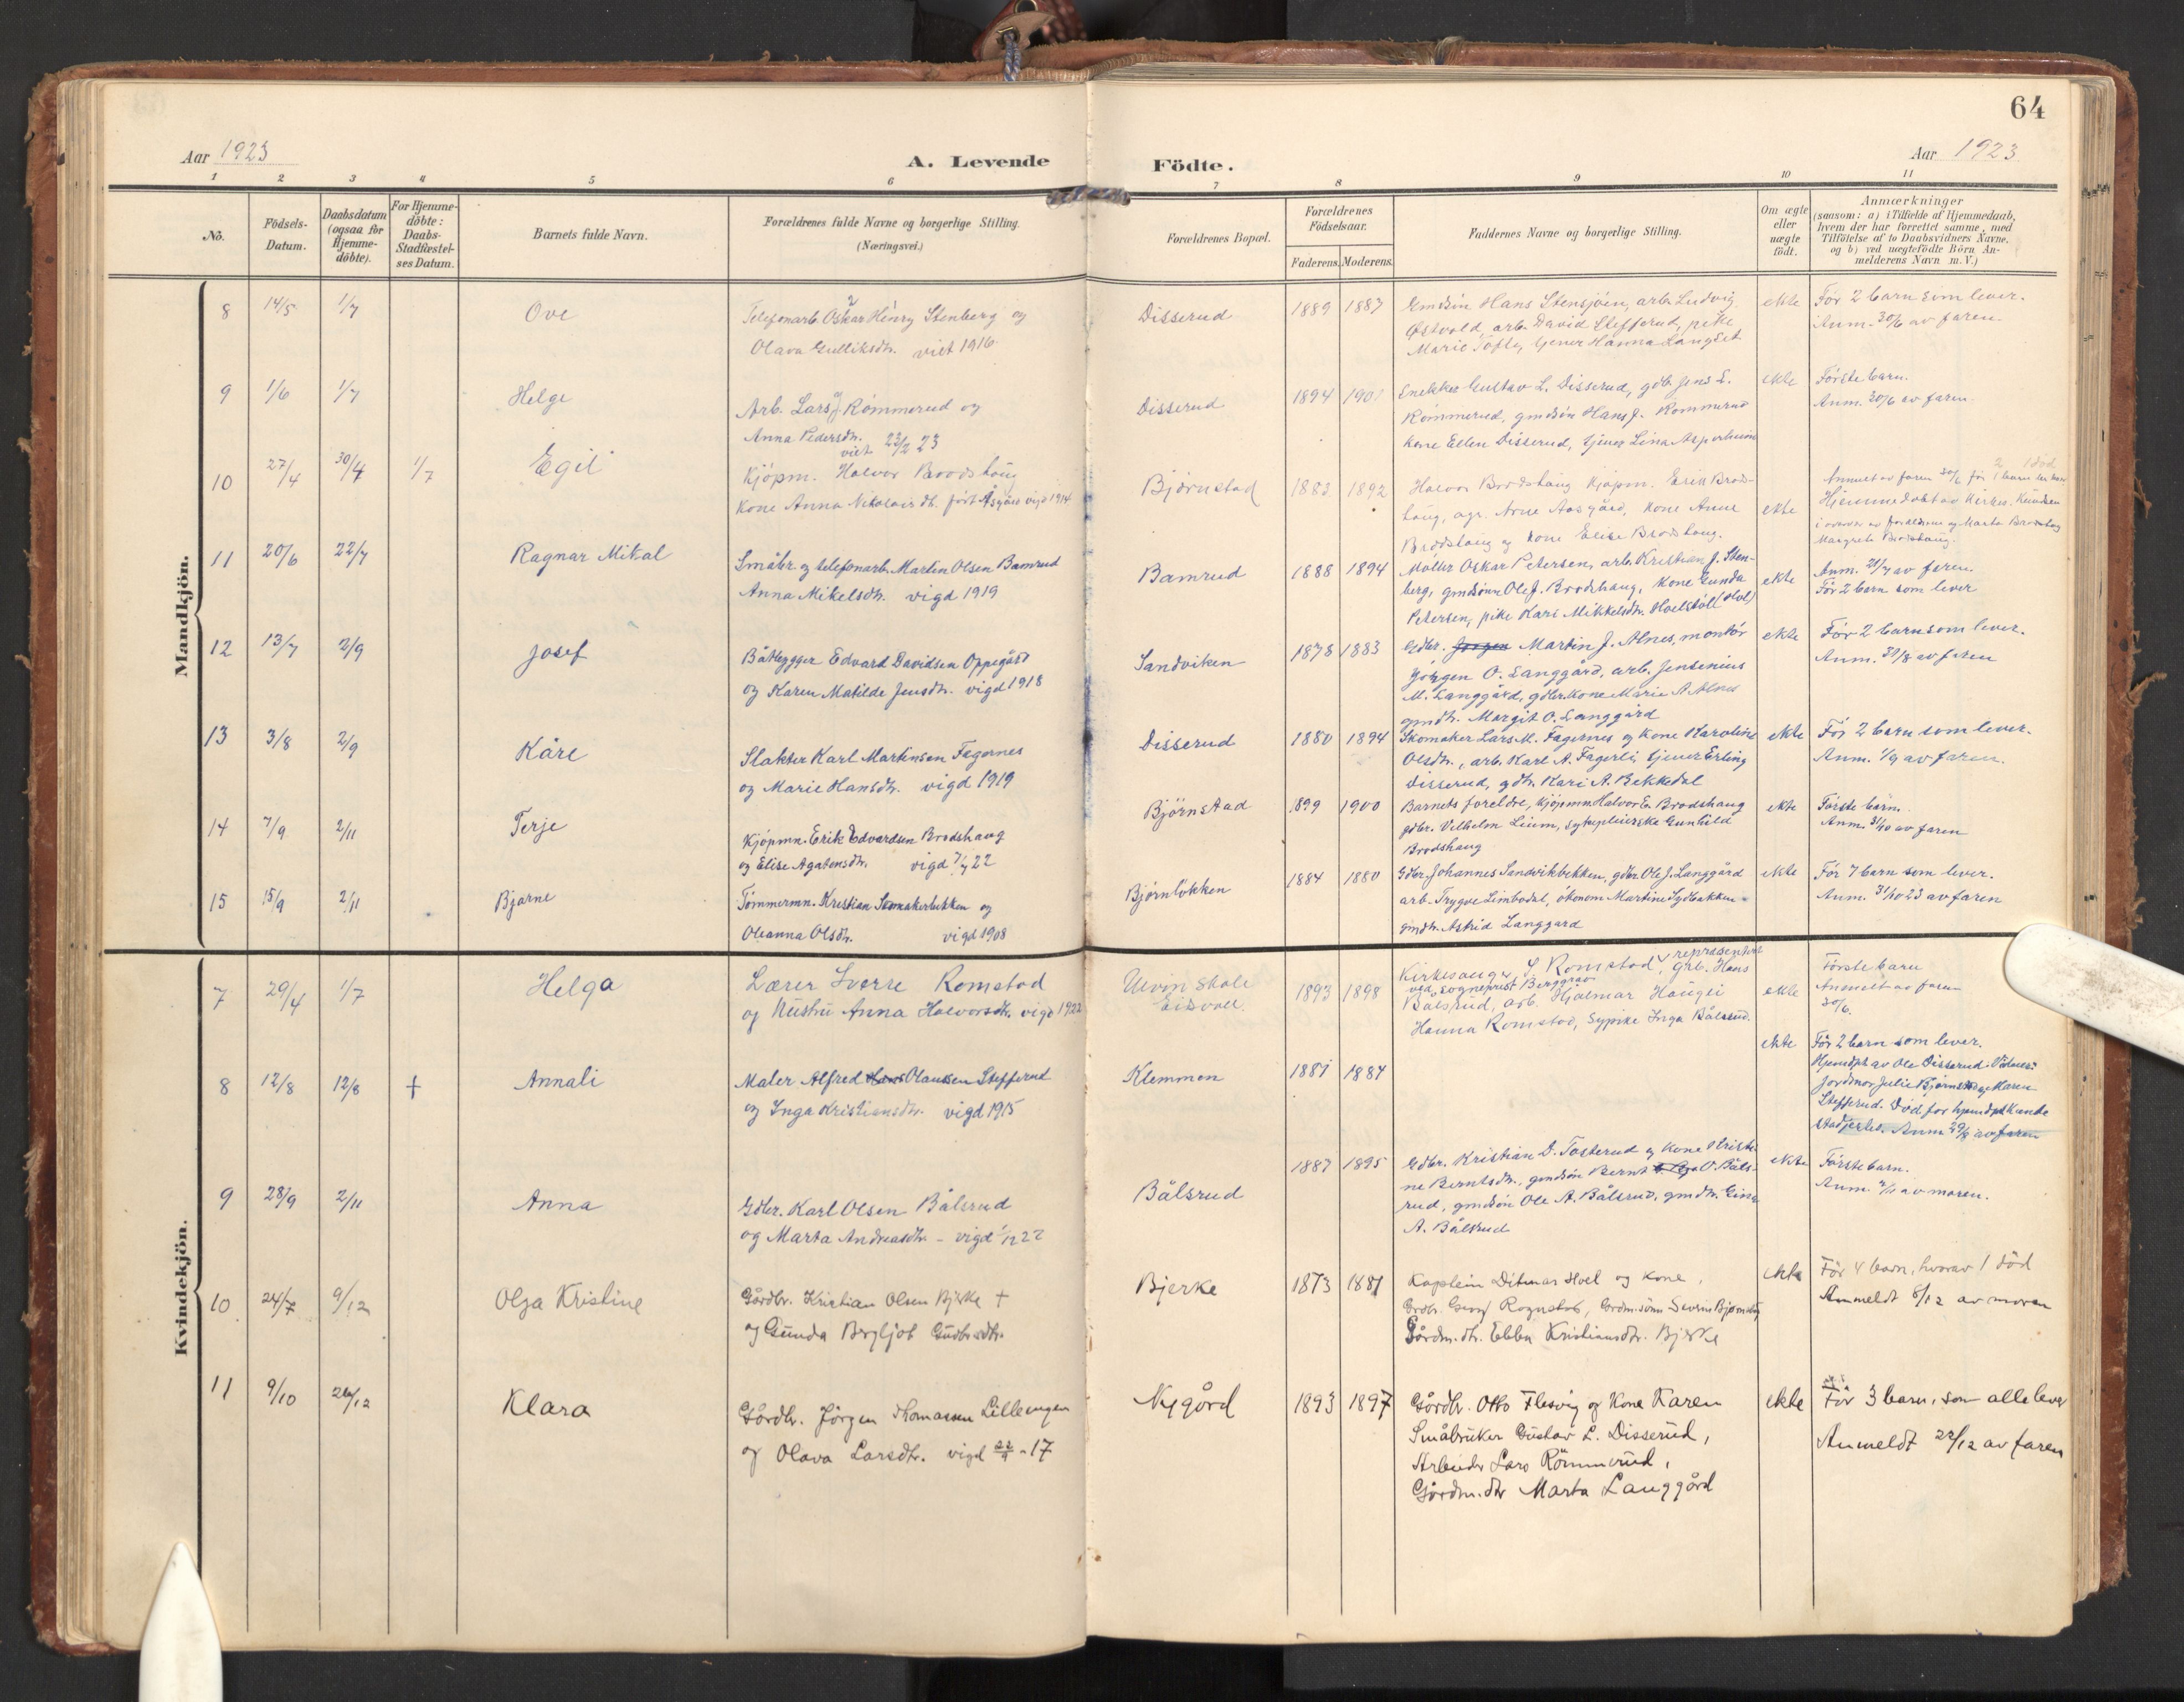 64
Aar 1923
A. Levende Födte.
Aar 1923
1 2 3 4 5 6 7 8 9 10 11
No.
Födsels-Datum.
Daabsdatum (ogsaa for Hjemme-döbte).
For Hjemme-döbte: Daabs-Stadfæstel-ses Datum.
Barnets fulde Navn.
Forældrenes fulde Navne og borgerlige Stilling. (Næringsvei.)
Forældrenes Bopæl.
Forældrenes Födselsaar.
Faderens. Moderens.
Faddernes Navne og borgerlige Stilling.
Om ægte eller uægte födt.
Anmærkninger
(saasom: a) i Tilfælde af Hjemmedaab,
hvem der har forrettet samme, med
Tilföielse af to Daabsvidners Navne,
og b) ved uægtefödte Börn An-
melderens Navn m. V.)
Mandkjön.
8 14/5 1/7 Ove
Telefonarb. Oskar Henry Stenberg og
Olava Gulliksdtr. viet 1916.
Disserud 1889 1887
Gmdsön Hans Stensjöen, arb. Ludvig
Østvold, arb. David Stefferud, pike
Marie Tofte, tjener Hanna Langset
ekte
Før 2 barn som lever.
Anm. 30/6 av faren.
9 1/6 1/7 Helge
Arb. Lars J. Rømmerud og
Anna Pedersdtr.
viet 23/2 23
Disserud 1894 1901
Snekker Gustav L. Disserud, gdb. Jens L.
Rømmerud, gmdsön Hans J. Rommerud
kone Ellen Disserud, tjener Lina Asperheim
ekte
Første barn.
Anm. 30/6 av faren.
10 27/4 30/4 1/7 Egil
Kjöpm. Halvor Brodshaug
Kone Anna Nikolais dt. født Åsgård vigd 1914.
Bjørnstad 1883 1892
Halvor Brodshaug Kjøpm. Erik Brods-
haug, agr. Arne Aasgård, kone Anne
Brodshaug og kone Elise Brodshaug.
ekte
Anmeldt av faren 30/6 før 2 barn 1 død
Hjemmedøbt av Kirkes. Knudsen
i nærvær av foreldrene og Marta Brodshaug
Margrete Brodshaug.
11 20/6 22/7 Ragnar Mikal
Småbr. og telefonarb. Martin Olsen Bamrud
Anna Mikelsdtr. vigd 1919
Bamrud 1888 1894
Møller Oskar Petersen, arb. Kristian J. Sten-
berg, gmdsønn Ole J. Brodshaug, kone Gunda
Petersen, pike Kari Mikkelsdtr. Hoelstöll (Hol)
ekte
Anm. 21/7 av faren.
Før 2 barn som lever
12 13/7 2/9 Josef
Båtbygger Edvard Davidsen Oppegård
og Karen Matilde Jensdtr. vigd 1918
Sandviken 1878 1883
Gdbr. Jørgen Martin J. Alnes, montör
Jörgen O. Langgård, arb. Jensenius
M. Langgård, gdbr.kone Marie A. Alnes
gmdtr. Margit O. Langgård
ekte
Før 2 barn som lever.
Anm. 31/8 av faren
13 3/8 2/9 Kåre
Slakter Karl Martinsen Fagernes
og Marie Hansdtr. vigd 1919
Disserud 1880 1894
Skomaker Lars M. Fagernes og kone Karoline
Olsdtr., arb. Karl A. Fagerli, tjener Erling
Disserud, gdtr. Kari A. Bekkedal
ekte
Før 2 barn som lever.
Anm. 1/9 av faren.
14 7/9 2/11 Terje
Kjöpmn. Erik Edvardsen Brodshaug
og Elise Agatonsdtr. vigd 7/7 22
Björnstad 1899 1900
Barnets foreldre, kjöpmn Halvor E. Brodshaug
gdbr. Vilhelm Lium, Gunhild
Brodshaug
ekte
Første barn.
Anm. 31/10 av faren
15 15/9 2/11 Bjarne
Tømmermn. Kristian Somakerbekken og
Oleanna Olsdtr. vigd 1908
Bjørnløkken 1884 1880
Gdbr. Johannes Sandvikbekken, gdbr Ole J. Langgård
arb. Trygve Limbodal, økonom Martine Sydbakken
gmdtr. Astrid Langgard
ekte
Før 7 barn som lever.
Anm. 31/10 23 av faren
Kvindekjön.
7 29/4 1/7 Helga
Lærer Sverre Romstad
og Hustru Anna Halvorsdtr. vigd 1922
Ulvin skole
Eidsvoll.
1893 1898
Kirkesanger S. Romstad, representert
ved sogneprest Berggrav grb. Hans
Bålsrud, arb. Hjalmar Haugli
Hanna Romstad, Sypike Inga Bålsrud.
ekte
Første barn
Anmelt av faren
30/6.
8 12/8 12/8 † Annali
Maler Alfred Hans Olaussen Stefferud
og Inga Kristiansdtr. vigd 1915
Klemmen 1881 1884
ekte
Før 2 barn som lever.
Hjemdpt av Ole Disserud. Vidner:
Jordmor Julie Bjørnstad og Karen
Stefferud. Død for hjemdpt kunde
stadfestes. Anm 29/8 av faren
9 28/9 2/11 Anna
Gdbr. Karl Olsen Bålsrud
og Marta Andreasdtr. - vigd 1/12 22
Bålsrud 1887 1895
Gdbr. Kristian D. Tosterud og kone Kristi-
ne Berntsdtr., gmdsön Bernt O. Båls-
rud, gmdsön Ole A. Bålsrud, gmdtr. Gina
A. Bålsrud
ekte
Første barn.
Anm. 2/11 av moren.
10 24/7 9/12 Olga Kristine
Gårdbr. Kristian Olsen Bjerke †
og Gunda Bergljot Gudbrsdtr.
Bjerke 1873 1881
Kaptein Ditmar Hoel og kone,
Grdbr. Georg Rognstad, Grdm.sønn Severin Bjørnstad
Gårdm.dtr. Ebba Kristiansdtr. Bjerke
ekte
Før 4 barn, hvorav 1 død
Anmeldt 6/12 av moren
11 9/10 26/12 Klara
Gårdbr. Jørgen Thomassen Lilleengen
og Olava Larsdtr. vigd 22/9 - 17
Nygård 1893 1897
Gårdbr. Otto Flesvig og Kone Karen
Småbruker Gustav L. Disserud,
Arbeider Lars Rømmerud,
Gårdm.dtr Marta Langgård
ekte
Før 3 barn, som alle lever
Anmeldt 22/12 av faren